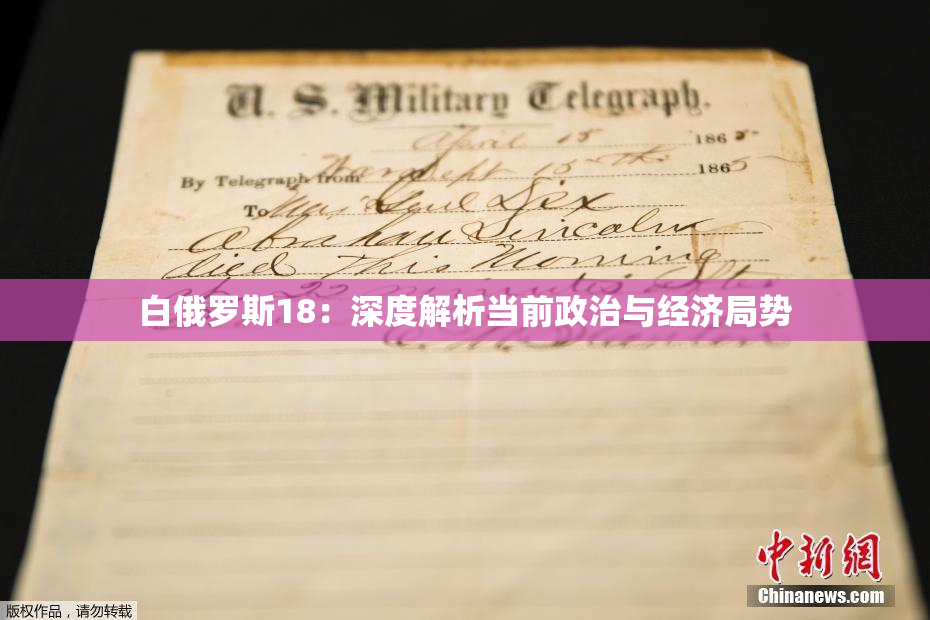 U. S. Military Telegraph.
April 15 1865
By Telegraph from War Dept 15th 1865
To Maj Genl Dix
Abraham Lincoln
died This Morning
at 22 minutes after
白俄罗斯18：深度解析当前政治与经济局势
E. M. Stanton
中新网
Chinanews.com
版权作品，请勿转载